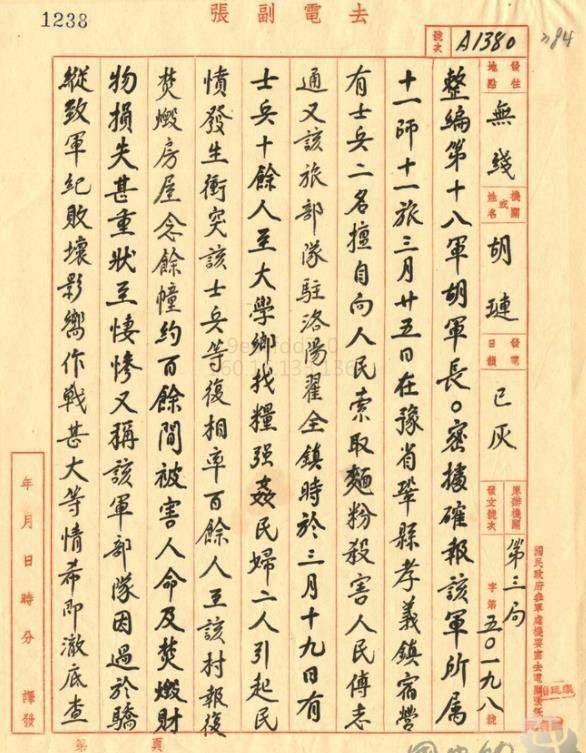 1238
去電副張
號次
A1380
發往地點
無綫
機關或姓名
胡璉
發電日韻
已灰
原辦機關
第三局
發文號次
字第五〇一九八號
國民政府參軍處機要室去電
整編第十八軍胡軍長〇密據確報該軍所屬
十一師十一旅三月廿五日在豫省鞏縣孝義鎮宿營
有士兵二名擅自向人民索取麵粉殺害人民傅志
通又該旅部隊駐洛陽翟全鎮時於三月十九日有
士兵十餘人至大學鄉找糧强姦民婦二人引起民
憤發生衝突該士兵等復相率百餘人至該村報復
焚燬房屋念餘幢約百餘間被害人命及焚燬財
物損失甚重狀至悽慘又稱該軍部隊因過於驕
縱致軍紀敗壞影嚮作戰甚大等情希即澈底查
年月日時分
譯發
第
頁